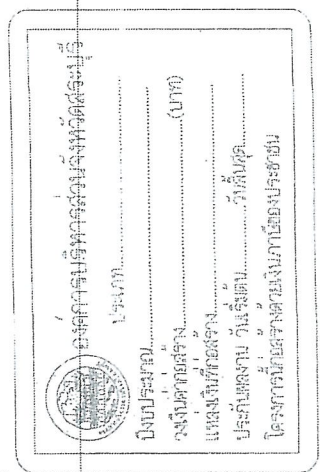 องค์การบริหารส่วนจังหวัดสระบุรี
ประเภท..............................
ปีงบประมาณ..............................
วงเงินค่าก่อสร้าง..............................(บาท)
แหล่งเงินที่ก่อสร้าง..............................
ประกันผลงาน วันเริ่มต้น....................วันสิ้นสุด....................
โครงการนี้ก่อสร้างด้วยเงินภาษีของประชาชน